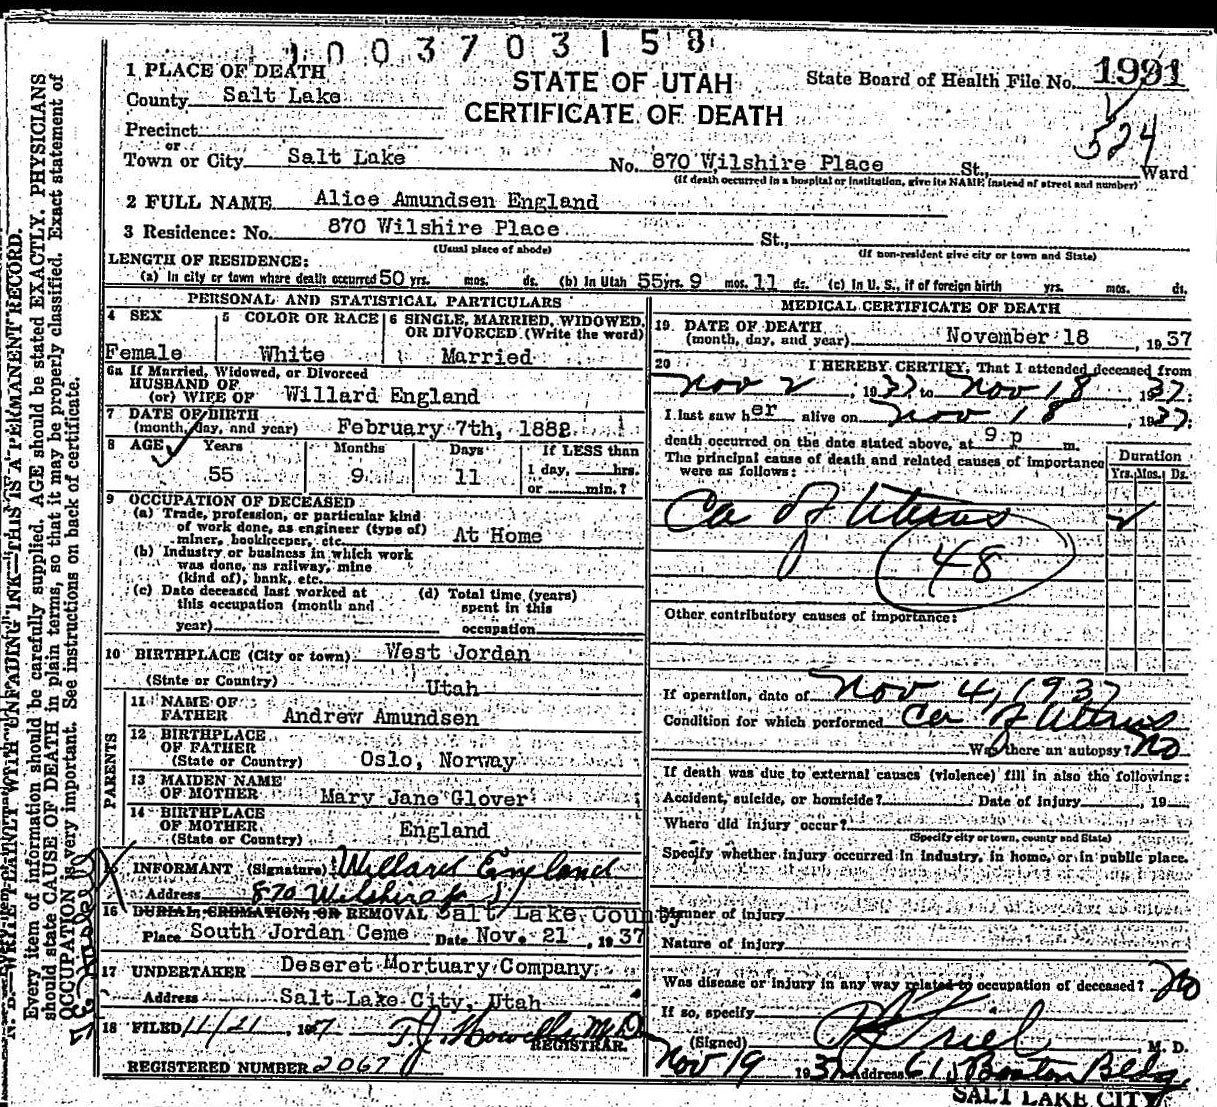 1003703158
1 PLACE OF DEATH
STATE OF UTAH
State Board of Health File No. 1991
County Salt Lake
CERTIFICATE OF DEATH
524
Precinct
or
Town or City Salt Lake No. 870 Wilshire Place St., Ward
(If death occurred in a hospital or institution, give its NAME instead of street and number)
2 FULL NAME Alice Amundsen England
3 Residence: No. 870 Wilshire Place St.,
(Usual place of abode) (If non-resident give city or town and State)
LENGTH OF RESIDENCE:
(a) In city or town where death occurred 50 yrs. mos. ds. (b) In Utah 55 yrs. 9 mos. 11 ds. (c) In U. S., if of foreign birth yrs. mos. ds.
PERSONAL AND STATISTICAL PARTICULARS
4 SEX 5 COLOR OR RACE 6 SINGLE, MARRIED, WIDOWED,
OR DIVORCED (Write the word)
Female White Married
6a If Married, Widowed, or Divorced
HUSBAND OF
(or) WIFE OF Willard England
7 DATE OF BIRTH
(month, day, and year) February 7th, 1882
8 AGE Years Months Days If LESS than
55 9 11 1 day, hrs.
or min.?
9 OCCUPATION OF DECEASED
(a) Trade, profession, or particular kind
of work done, as engineer (type of)
miner, bookkeeper, etc. At Home
(b) Industry or business in which work
was done, as railway, mine
(kind of), bank, etc.
(c) Date deceased last worked at (d) Total time (years)
this occupation (month and spent in this
year) occupation
10 BIRTHPLACE (City or town) West Jordan
(State or Country) Utah
PARENTS
11 NAME OF
FATHER Andrew Amundsen
12 BIRTHPLACE
OF FATHER
(State or Country) Oslo, Norway
13 MAIDEN NAME
OF MOTHER Mary Jane Glover
14 BIRTHPLACE
OF MOTHER
(State or Country) England
INFORMANT (Signature) Willard England
Address 870 Wilshire Pl
16 BURIAL, CREMATION, OR REMOVAL Salt Lake County
Place South Jordan Ceme Date Nov. 21, 1937
17 UNDERTAKER Deseret Mortuary Company
Address Salt Lake City, Utah
18 FILED 11/21, 1937 T. J. Howells M.D.
REGISTRAR.
REGISTERED NUMBER 2067
MEDICAL CERTIFICATE OF DEATH
19. DATE OF DEATH
(month, day, and year) November 18, 1937
20 I HEREBY CERTIFY, That I attended deceased from
Nov 2, 1937, to Nov 18 1937.
I last saw her alive on Nov 18, 1937.
death occurred on the date stated above, at 9 p m.
The principal cause of death and related causes of importance
were as follows:
Duration
Yrs. Mos. Ds.
Ca of Uterus
48
Other contributory causes of importance:
If operation, date of Nov 4, 1937
Condition for which performed Ca of Uterus
Was there an autopsy? No
If death was due to external causes (violence) fill in also the following:
Accident, suicide, or homicide? Date of injury, 19
Where did injury occur?
(Specify city or town, county and State)
Specify whether injury occurred in industry, in home, or in public place.
Manner of injury
Nature of injury
Was disease or injury in any way related to occupation of deceased? No
If so, specify
(Signed) M. D.
Nov 19 1937 Address 615 Boston Bldg
SALT LAKE CITY
N. B.—WRITE PLAINLY WITH UNFADING INK—THIS IS A PERMANENT RECORD.
Every item of information should be carefully supplied. AGE should be stated EXACTLY. PHYSICIANS
should state CAUSE OF DEATH in plain terms, so that it may be properly classified. Exact statement of
OCCUPATION is very important. See instructions on back of certificate.